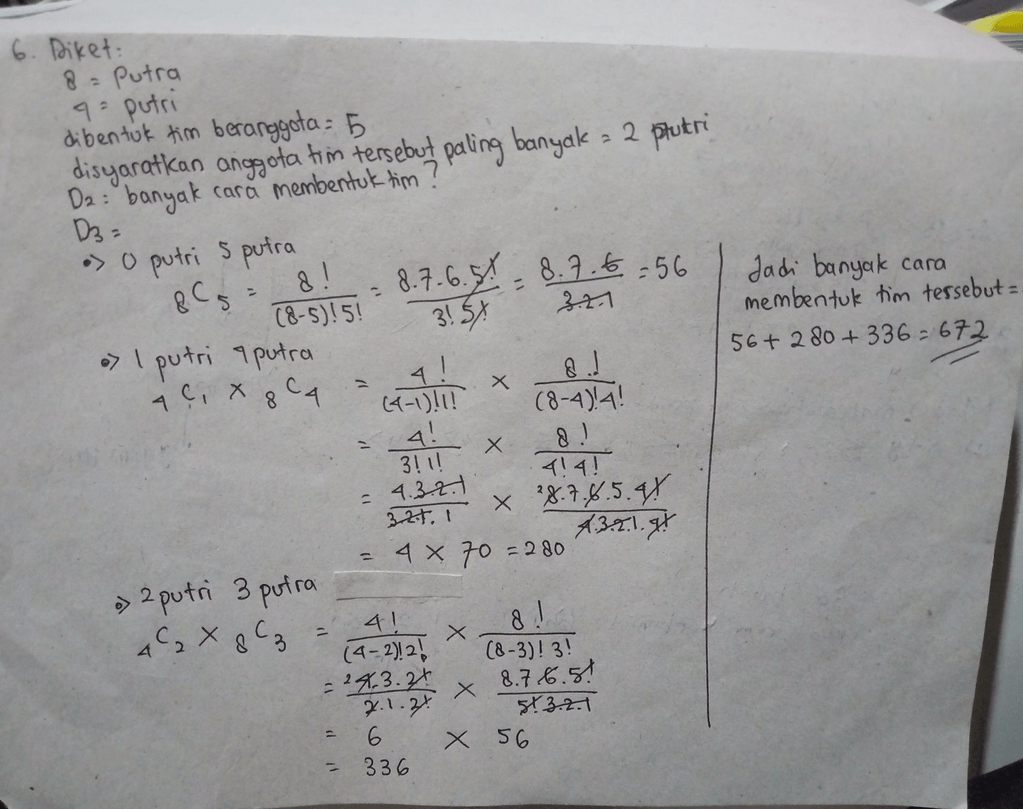 6. Diket:
8 = Putra
4 = putri
dibentuk tim beranggota = 5
disyaratkan anggota tim tersebut paling banyak = 2 putri
D2 : banyak cara membentuk tim ?
D3 =
•> 0 putri 5 putra
8C5 = 8! / (8-5)!5! = 8.7.6.5! / 3!5! = 8.7.6 / 3.2.1 = 56
•> 1 putri 4 putra
4C1 × 8C4 = 4! / (4-1)!1! × 8! / (8-4)!4!
= 4! / 3!1! × 8! / 4!4!
= 4.3.2.1 / 3.2.1.1 × ²8.7.6.5.4! / 4.3.2.1.4!
= 4 × 70 = 280
•> 2 putri 3 putra
4C2 × 8C3 = 4! / (4-2)!2! × 8! / (8-3)!3!
= ²4.3.2! / 2.1.2! × 8.7.6.5! / 5!3.2.1
= 6 × 56
= 336
Jadi banyak cara
membentuk tim tersebut =
56 + 280 + 336 = 672